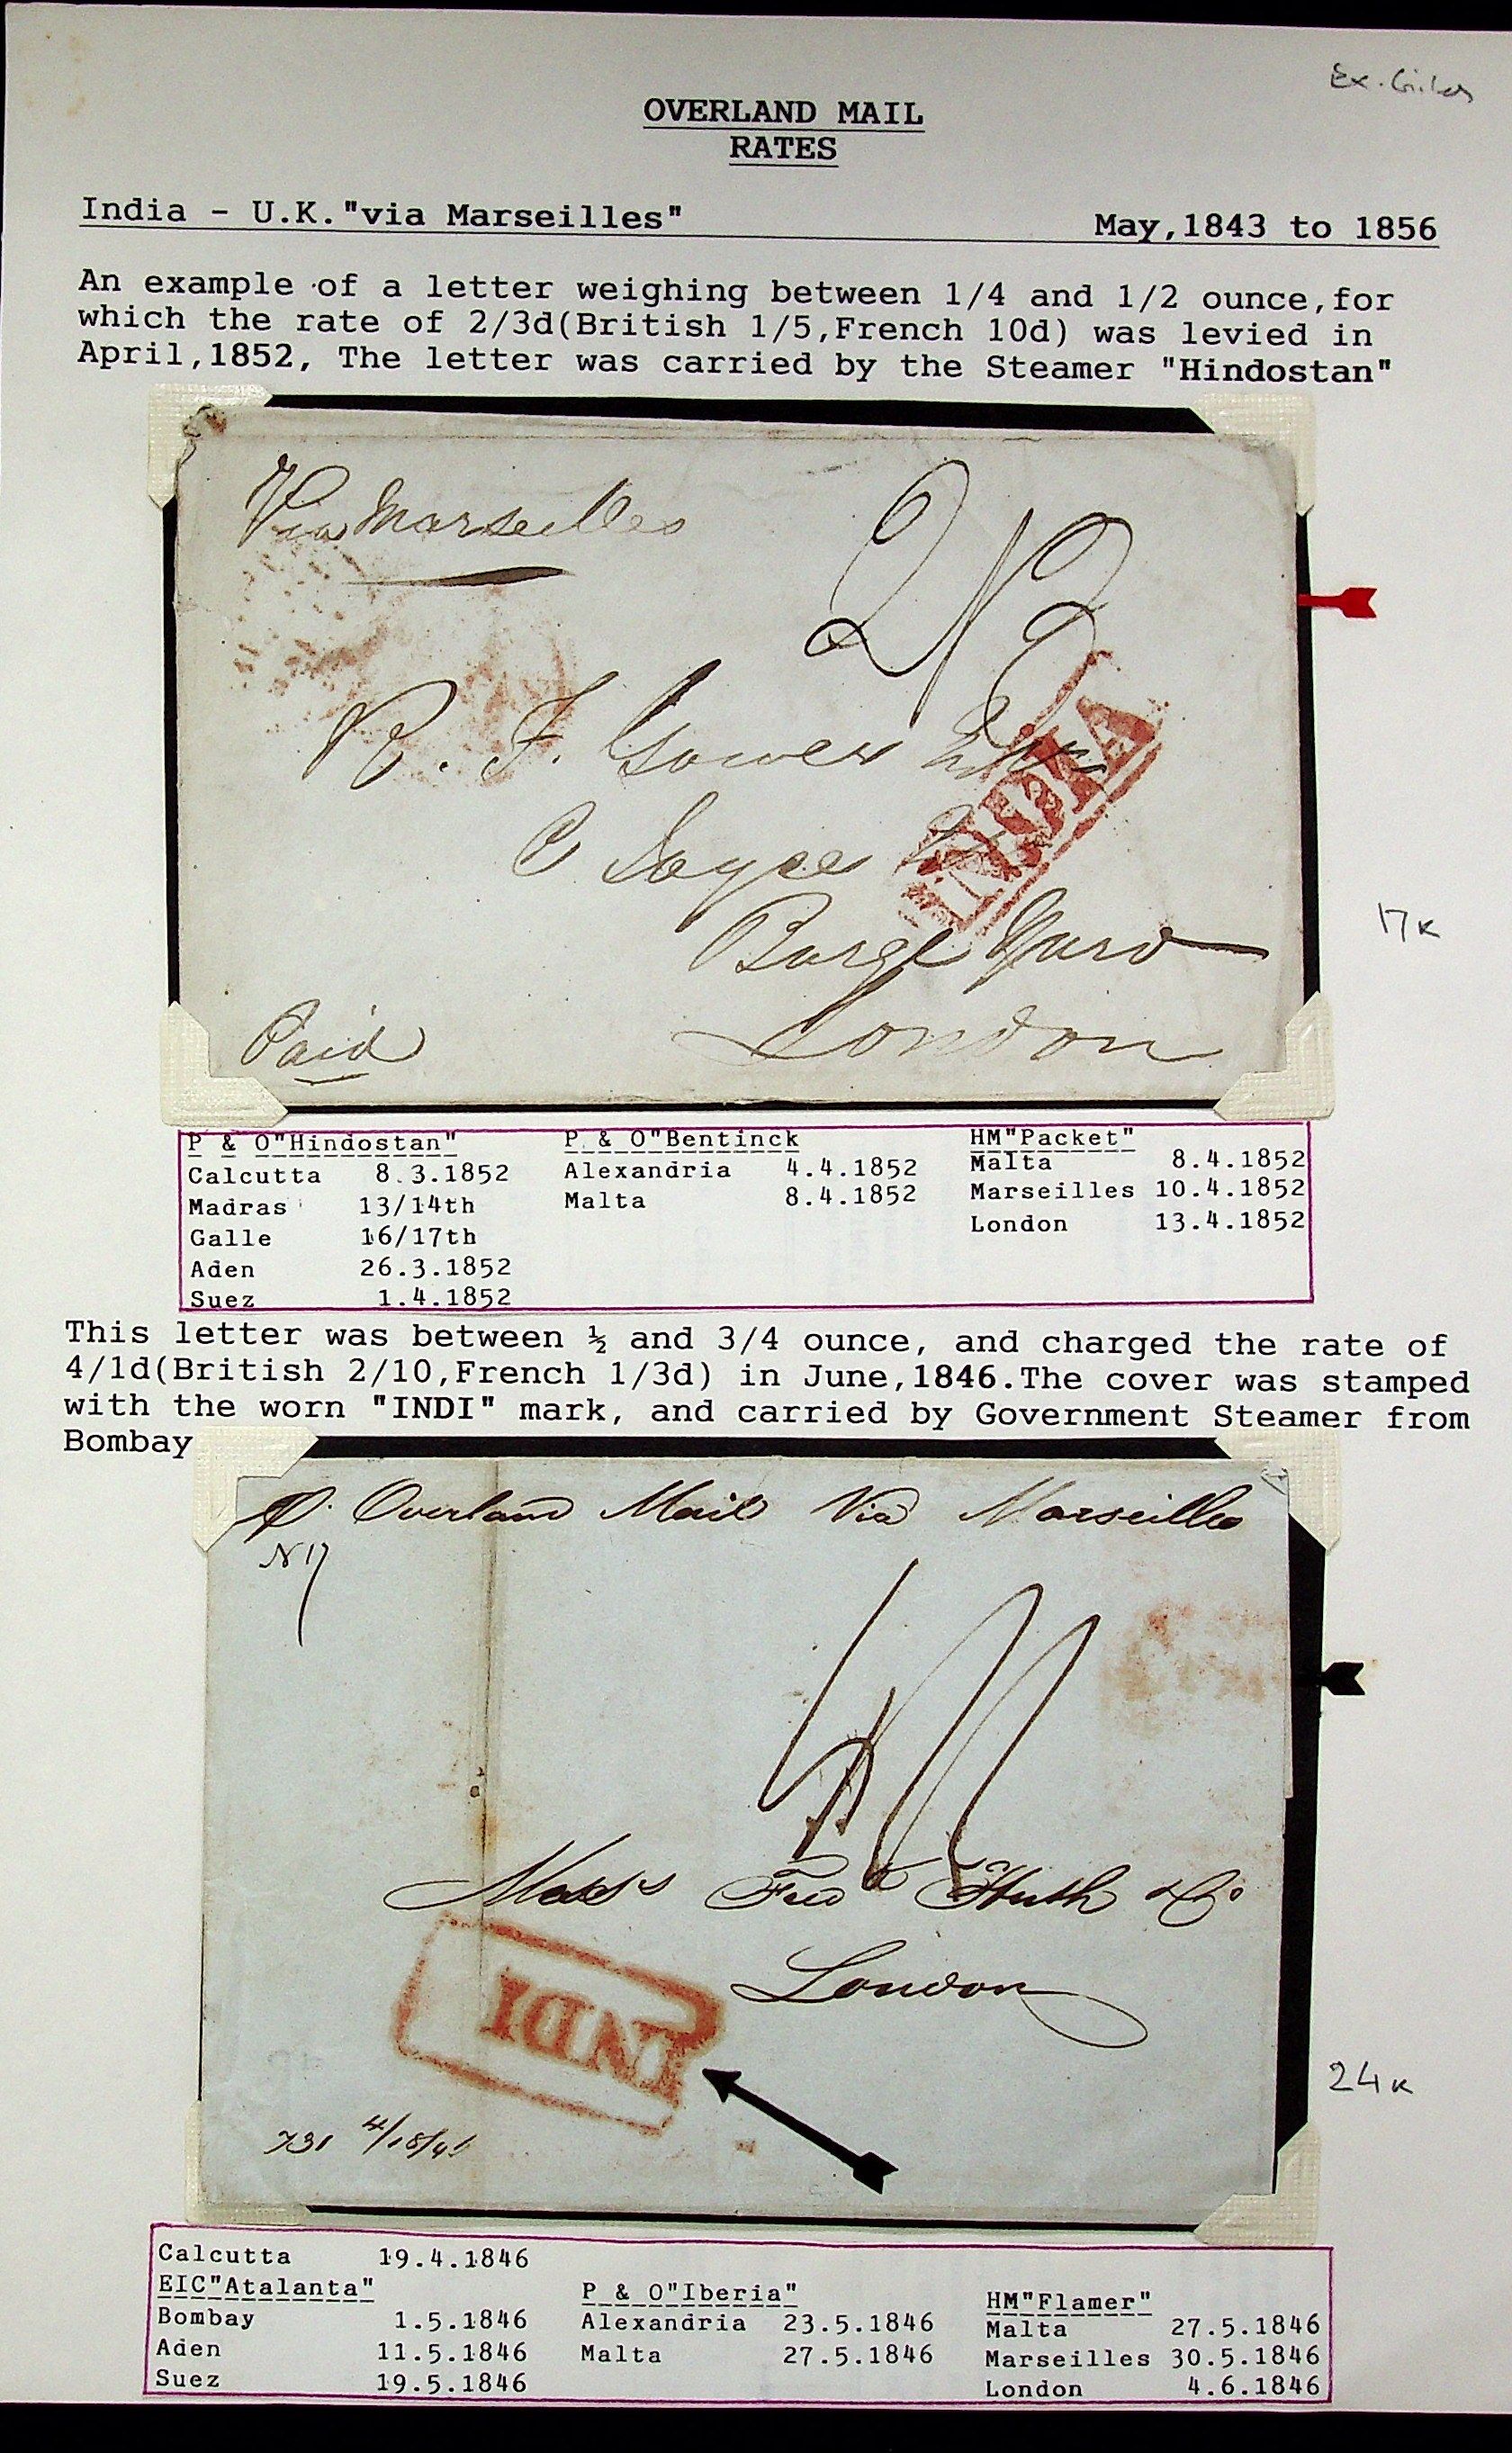 Ex. 
OVERLAND MAIL
RATES
India - U.K."via Marseilles" May,1843 to 1856
An example of a letter weighing between 1/4 and 1/2 ounce,for
which the rate of 2/3d(British 1/5,French 10d) was levied in
April,1852, The letter was carried by the Steamer "Hindostan"
Via Marseilles
2/3
R. F. Gower Esqr
INDIA
C Joyce
Barge Yard
London
Paid
17K
P & O"Hindostan" P & O"Bentinck HM"Packet"
Calcutta 8.3.1852 Alexandria 4.4.1852 Malta 8.4.1852
Madras 13/14th Malta 8.4.1852 Marseilles 10.4.1852
Galle 16/17th London 13.4.1852
Aden 26.3.1852
Suez 1.4.1852
This letter was between ½ and 3/4 ounce, and charged the rate of
4/1d(British 2/10,French 1/3d) in June,1846.The cover was stamped
with the worn "INDI" mark, and carried by Government Steamer from
Bombay
P. Overland Mail Via Marseilles
4/1
Messrs Fredk Huth & Co
London
INDI
24K
731
Calcutta 19.4.1846
EIC"Atalanta" P & O"Iberia" HM"Flamer"
Bombay 1.5.1846 Alexandria 23.5.1846 Malta 27.5.1846
Aden 11.5.1846 Malta 27.5.1846 Marseilles 30.5.1846
Suez 19.5.1846 London 4.6.1846